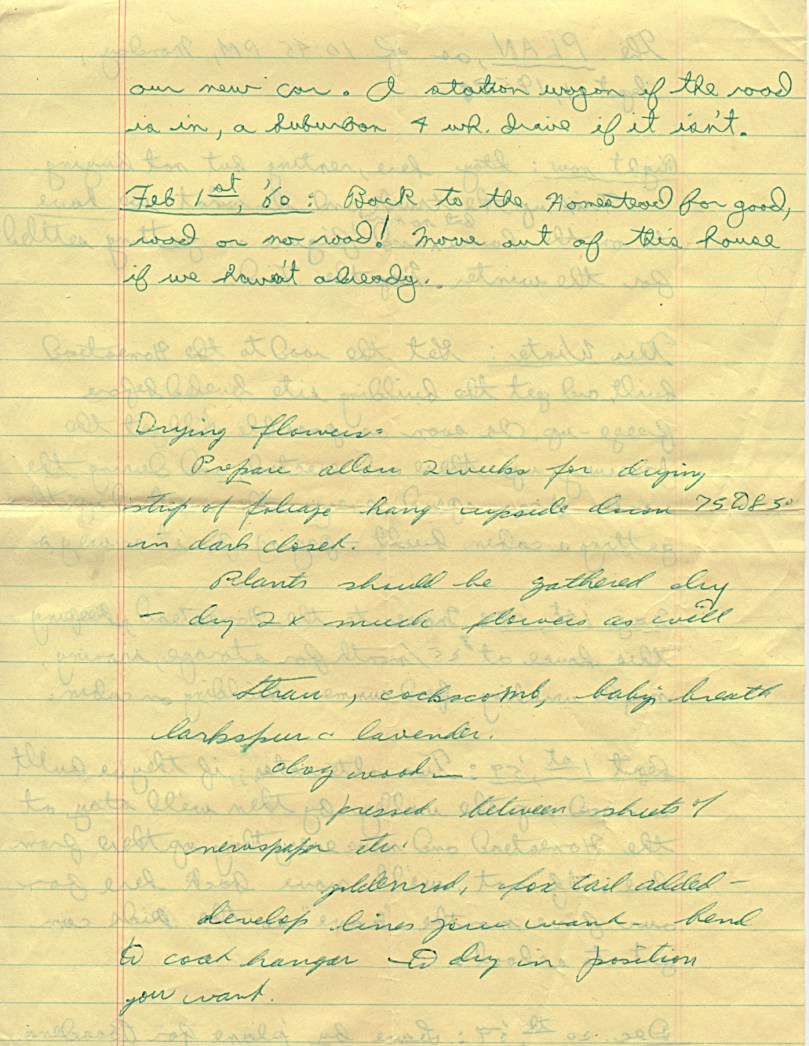 our new car. A station wagon if the road
is in, a suburban 4 wh. drive if it isn't.
Feb 1st, '60: Back to the Homestead for good,
road or no road! Move out of this house
if we haven't already.
Drying flowers =
Prepare allow 2 weeks for drying
strip of foliage hang upside down 75 to 85°
in dark closet.
Plants should be gathered dry
- dry 2 x much flowers as will
Straw, cockscomb, baby's breath
larkspur - lavender.
dogwood —
pressed between sheets of
newspaper etc.
goldenrod, fox tail added -
develop lines you want - bend
to coat hanger - to dry in position
you want.